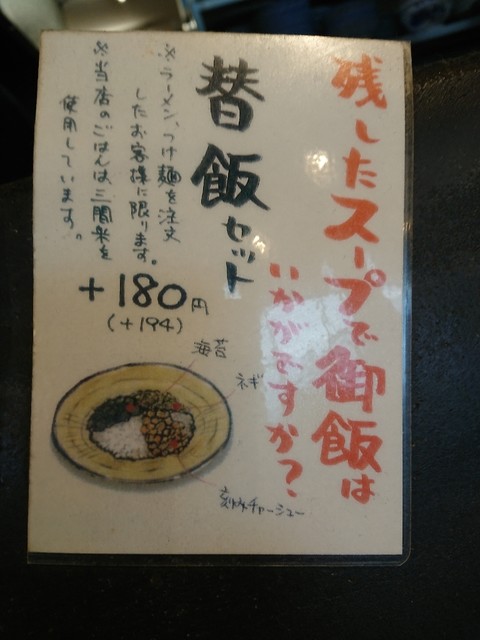 残したスープで御飯は
いかがですか?
替飯セット
※ラーメン、つけ麺を注文
したお客様に限ります。
※当店のごはんは三関米を
使用しています。
+180円
(+194)
海苔
ネギ
刻みチャーシュー